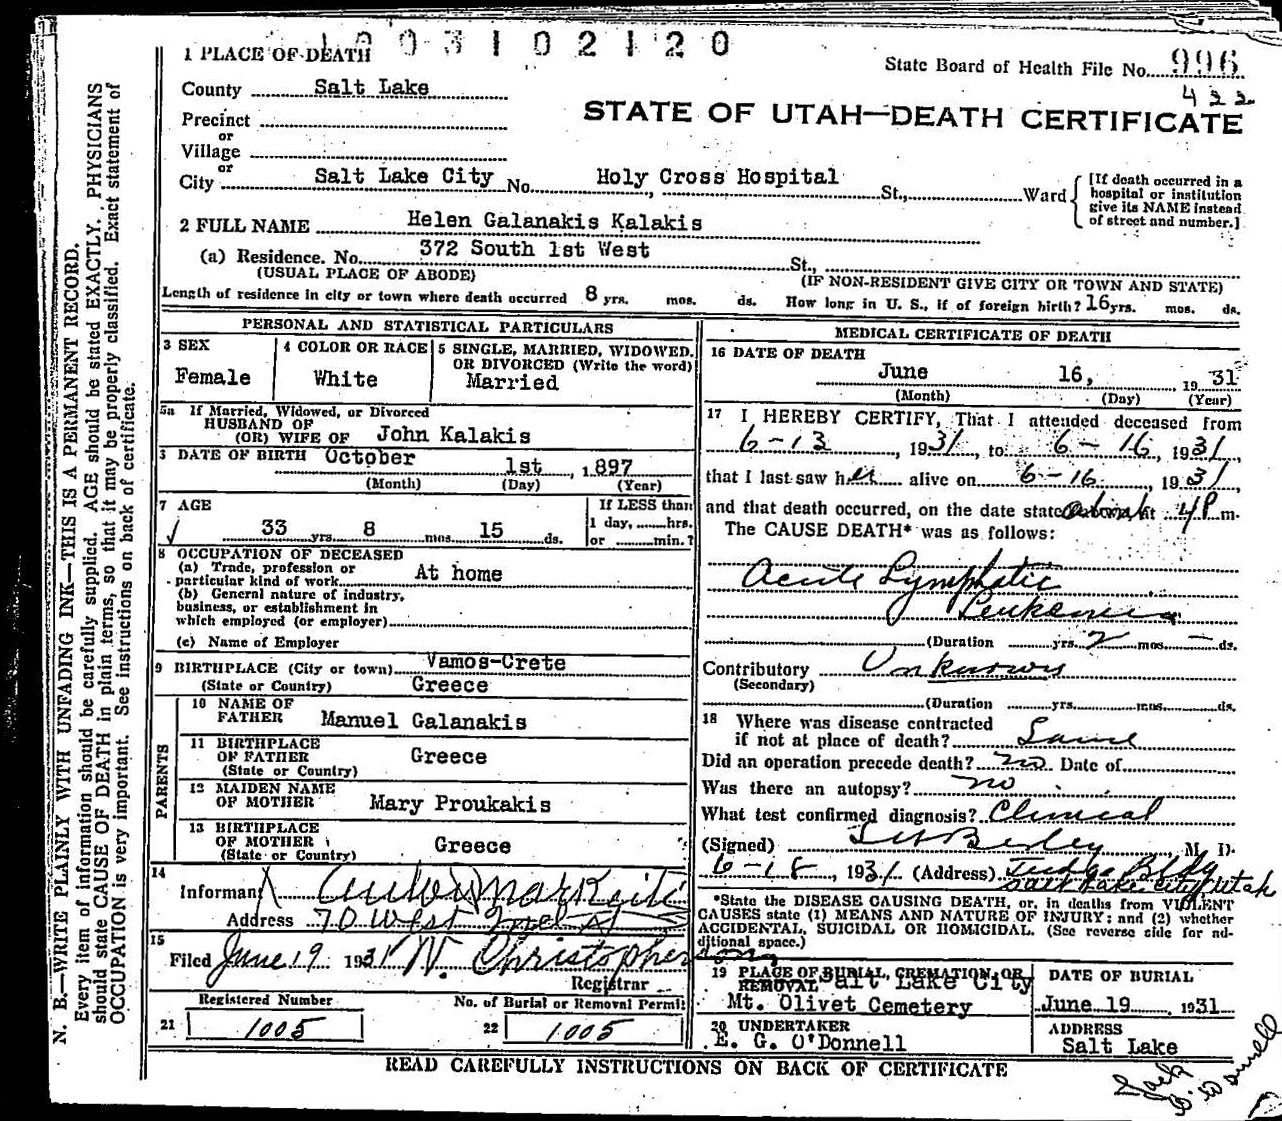 1003102120
1 PLACE OF DEATH
State Board of Health File No. 996
422
County Salt Lake
STATE OF UTAH—DEATH CERTIFICATE
Precinct
or
Village
or
City Salt Lake City No. Holy Cross Hospital St., Ward
[If death occurred in a
hospital or institution
give its NAME instead
of street and number.]
2 FULL NAME Helen Galanakis Kalakis
(a) Residence. No. 372 South 1st West St.,
(USUAL PLACE OF ABODE) (IF NON-RESIDENT GIVE CITY OR TOWN AND STATE)
Length of residence in city or town where death occurred 8 yrs. mos. ds. How long in U. S., if of foreign birth? 16 yrs. mos. ds.
PERSONAL AND STATISTICAL PARTICULARS
3 SEX
Female
4 COLOR OR RACE
White
5 SINGLE, MARRIED, WIDOWED,
OR DIVORCED (Write the word)
Married
5a If Married, Widowed, or Divorced
HUSBAND OF
(OR) WIFE OF John Kalakis
DATE OF BIRTH October 1st, 1897
(Month) (Day) (Year)
7 AGE
33 yrs. 8 mos. 15 ds.
If LESS than
1 day, hrs.
or min.?
8 OCCUPATION OF DECEASED
(a) Trade, profession or
particular kind of work At home
(b) General nature of industry,
business, or establishment in
which employed (or employer)
(c) Name of Employer
9 BIRTHPLACE (City or town) Vamos-Crete
(State or Country) Greece
PARENTS
10 NAME OF
FATHER Manuel Galanakis
11 BIRTHPLACE
OF FATHER Greece
(State or Country)
12 MAIDEN NAME
OF MOTHER Mary Proukakis
13 BIRTHPLACE
OF MOTHER Greece
(State or Country)
14
Informant
Address 70 West
15
Filed June 19 1931 W. Christopherson
Registrar
Registered Number
21 1005
No. of Burial or Removal Permit
22 1005
MEDICAL CERTIFICATE OF DEATH
16 DATE OF DEATH
June 16, 1931
(Month) (Day) (Year)
17 I HEREBY CERTIFY, That I attended deceased from
6-13, 1931 to 6-16, 1931,
that I last saw her alive on 6-16, 1931,
and that death occurred, on the date stated above at 4 P m.
The CAUSE DEATH* was as follows:
Acute Lymphatic
Leukemia
(Duration yrs. 2 mos. - ds.
Contributory Unknown
(Secondary)
(Duration yrs. mos. ds.
18 Where was disease contracted
if not at place of death? Same
Did an operation precede death? no Date of
Was there an autopsy? no
What test confirmed diagnosis? Clinical
(Signed) M. D.
6-18, 1931 (Address) Judge Bldg
Salt Lake City Utah
*State the DISEASE CAUSING DEATH, or, in deaths from VIOLENT
CAUSES state (1) MEANS AND NATURE OF INJURY; and (2) whether
ACCIDENTAL, SUICIDAL OR HOMICIDAL. (See reverse side for ad-
ditional space.)
19 PLACE OF BURIAL, CREMATION, OR
REMOVAL Salt Lake City
Mt. Olivet Cemetery
DATE OF BURIAL
June 19, 1931
20 UNDERTAKER
E. G. O'Donnell
ADDRESS
Salt Lake
READ CAREFULLY INSTRUCTIONS ON BACK OF CERTIFICATE
Jack
O'Donnell
N. B.—WRITE PLAINLY WITH UNFADING INK—THIS IS A PERMANENT RECORD.
Every item of information should be carefully supplied. AGE should be stated EXACTLY. PHYSICIANS
should state CAUSE OF DEATH in plain terms, so that it may be properly classified. Exact statement of
OCCUPATION is very important. See instructions on back of certificate.